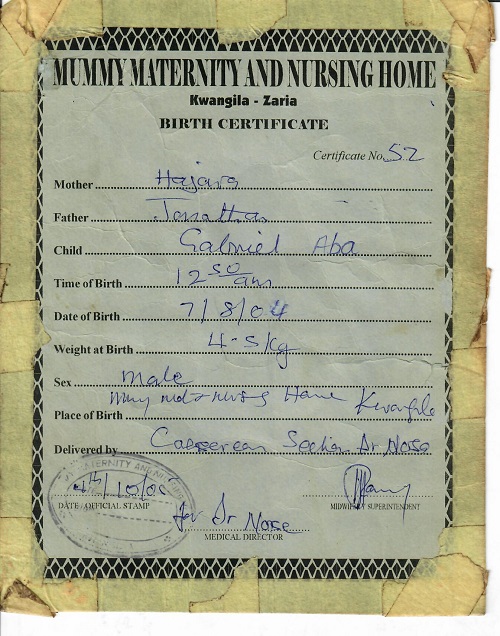 MUMMY MATERNITY AND NURSING HOME
Kwangila - Zaria
BIRTH CERTIFICATE
Certificate No. 52
Mother Hajara
Father Jonathan
Child Gabriel Aba
Time of Birth 12 50 am
Date of Birth 7/8/04
Weight at Birth 4.5kg
Sex Male
Place of Birth Home Kwangila
Delivered by Caeserean Section Dr Nose
MATERNITY AND
4th/10/05
DATE / OFFICIAL STAMP
MIDWIFERY SUPERINTENDENT
for Dr Nose
MEDICAL DIRECTOR